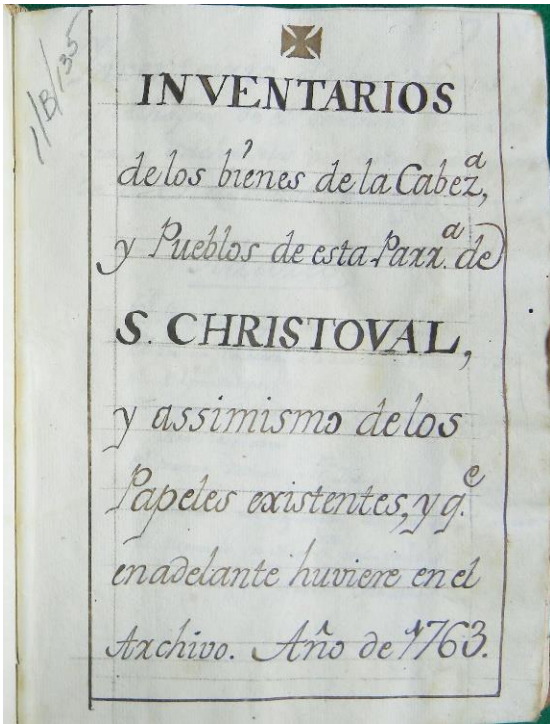 1/B/135
INVENTARIOS
de los bienes de la Cabez.ª,
y Pueblos de esta Parr.ª de
S. CHRISTOVAL,
y assimismo de los
Papeles existentes, y q.e
en adelante huviere en el
Archivo. Año de 1763.